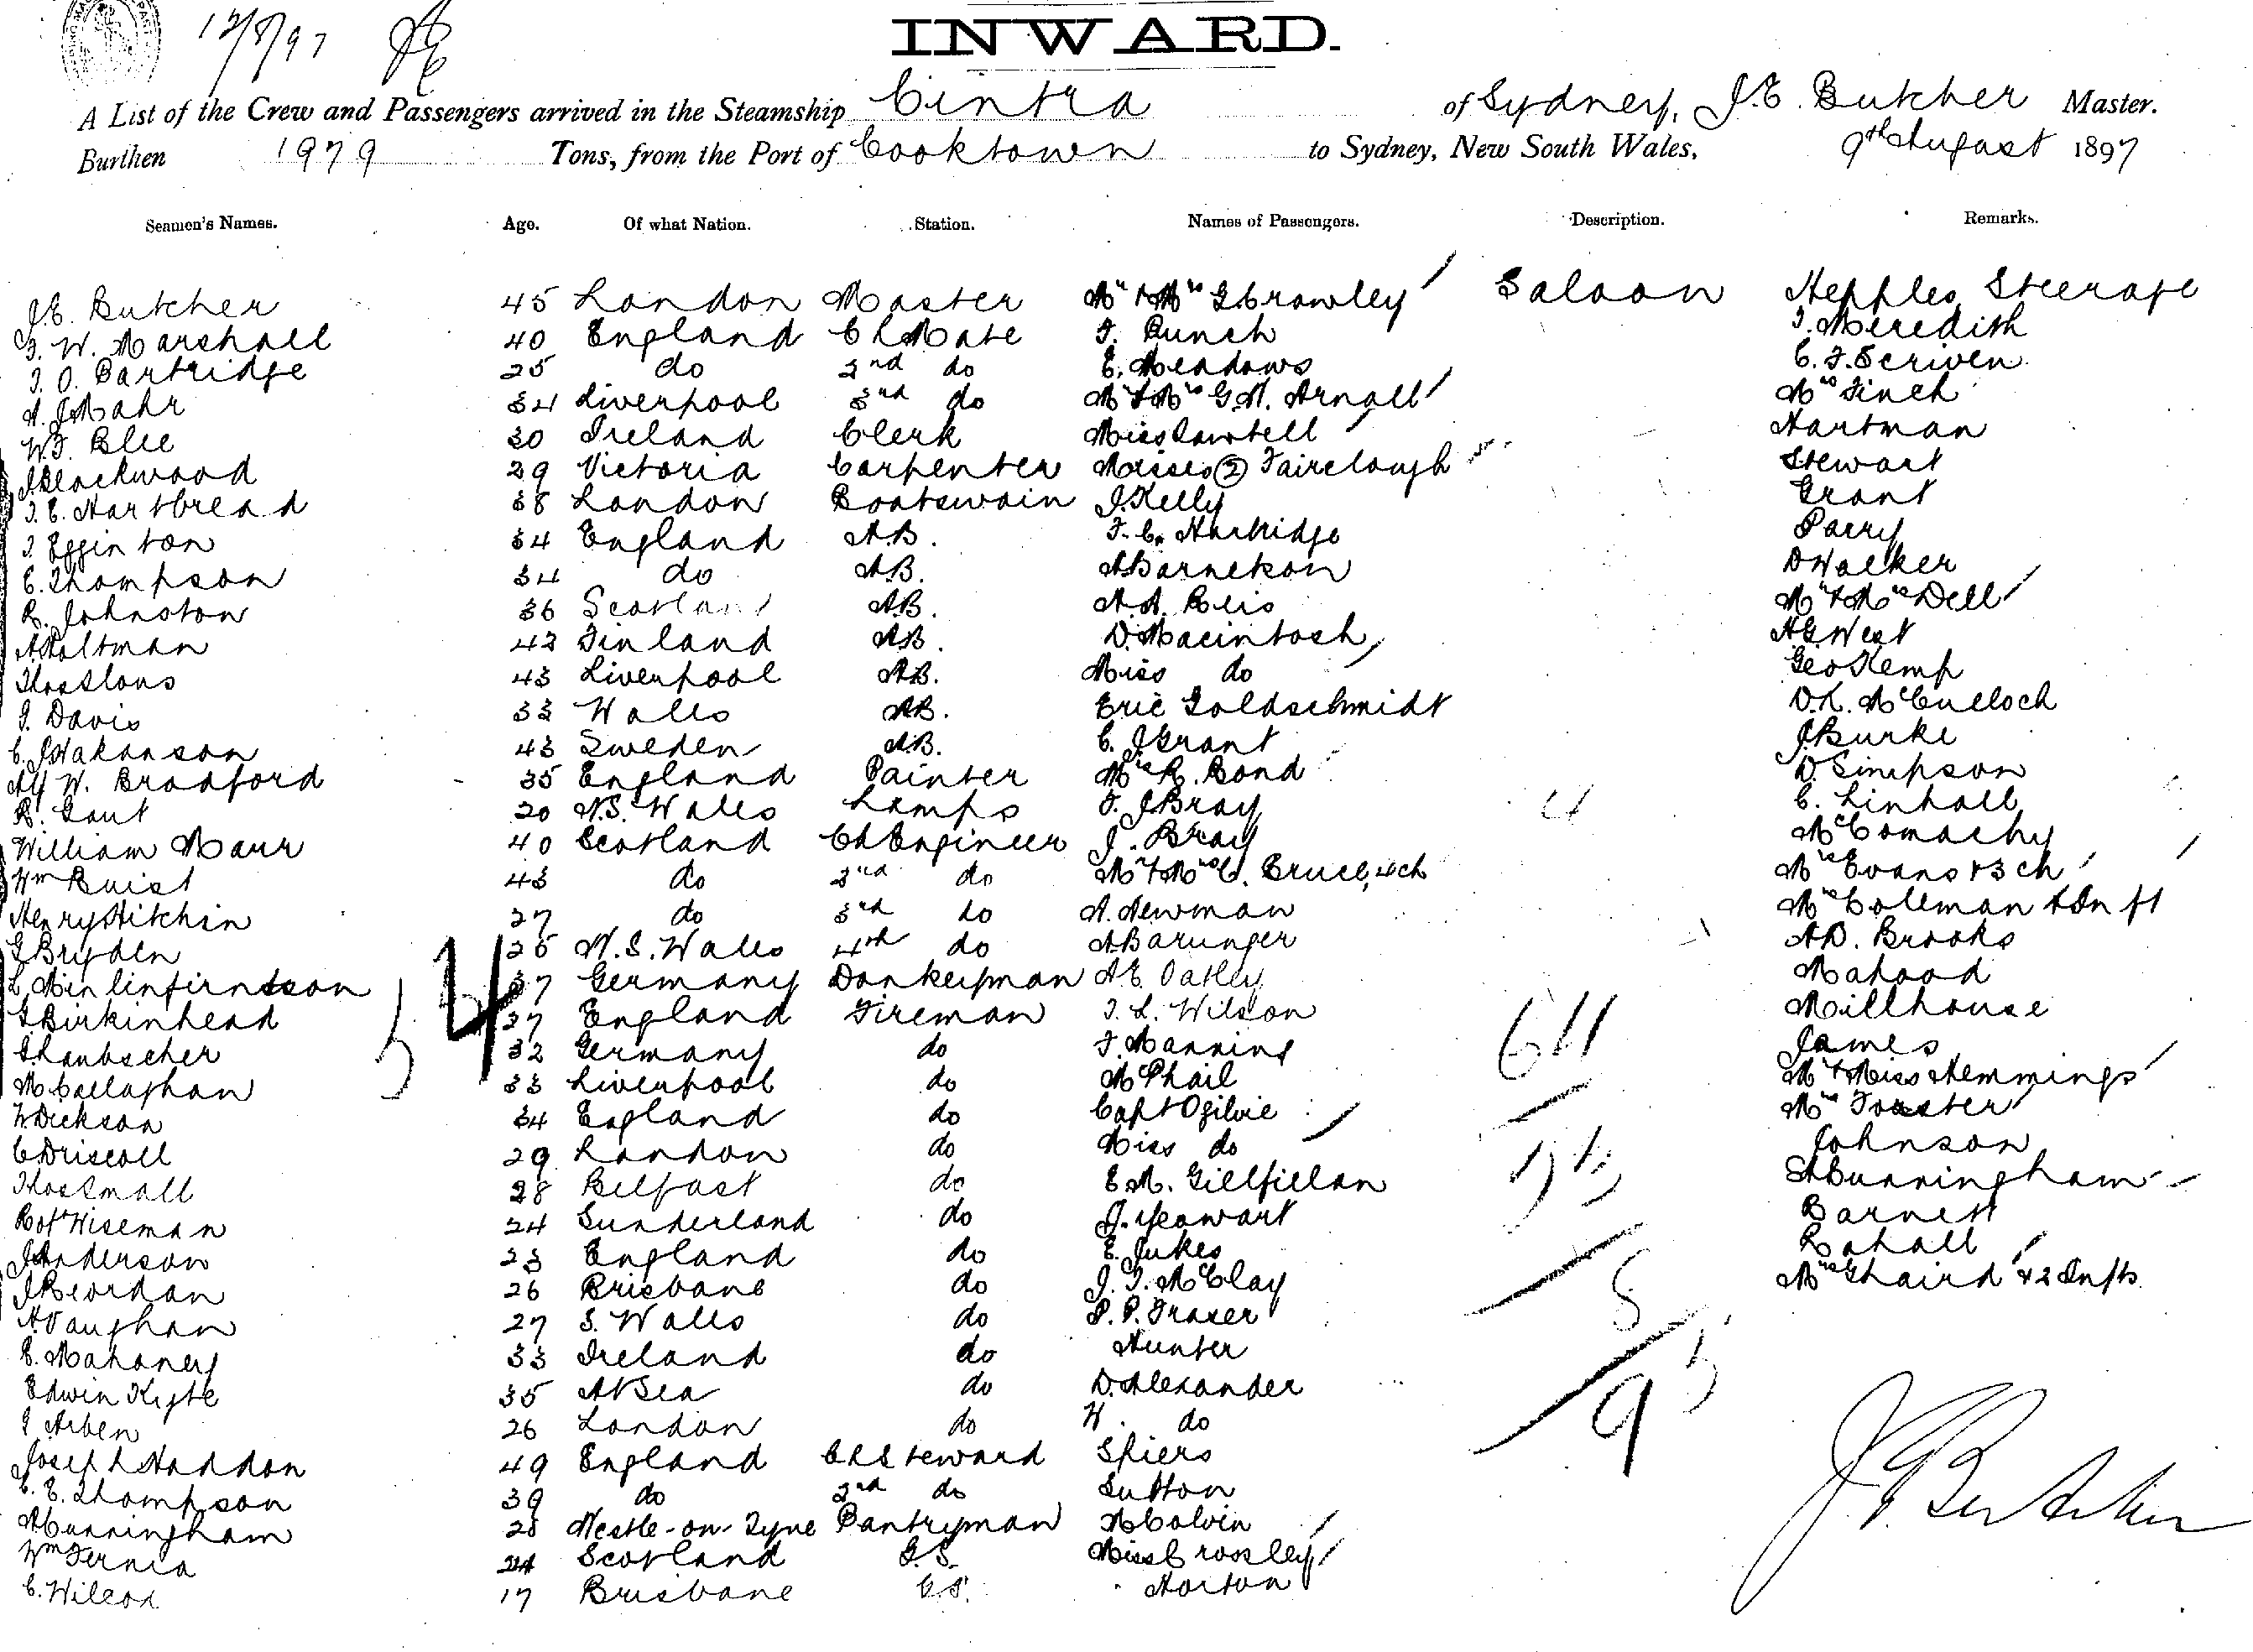 12/8/97
INWARD.
A List of the Crew and Passengers arrived in the Steamship Cintra of Sydney, J.E. Butcher Master.
Burthen 1979 Tons, from the Port of Cooktown to Sydney, New South Wales, 9th August 1897
Seamen's Names. Age. Of what Nation. Station. Names of Passengers. Description. Remarks.
J.E. Butcher 45 London Master Mr & Mrs G Crowley Saloon Hepples Steerage
F. W. Marshall 40 England Ch Mate F. Bunch J. Meredith
J. O. Partridge 25 do 2nd do E. Meadows C. F. Scriven
A. J Mahr 34 Liverpool 3rd do Mr & Mrs G.H. Arnall Mrs Finch
W.F. Blee 30 Ireland Clerk Miss Cowtell Hartman
J Blackwood 29 Victoria Carpenter Misses (2) Fairclough Stewart
J. E. Hartbread 38 London Boatswain J. Kelly Grant
J. Egginton 34 England A.B. F. C. Hartridge Parry
C. Thompson 34 do A.B. A Barnekow D Walker
R. Johnston 36 Scotland A.B. A. A. Reis Mr & Mrs Dell
A Saltman 42 Finland A.B. D. Macintosh A G West
43 Liverpool A.B. Miss do Geo Kemp
J. Davis 33 Wales A.B. Eric Goldschmidt D. L. McCulloch
C. J Hakanson 43 Sweden A.B. C. J Grant J Burke
Alf W. Bradford 35 England Painter Mrs R. Bond D. Simpson
R. Gaut 20 N.S. Wales Lamps F. J Bray C. Linhall
William Marr 40 Scotland Ch Engineer J. Bray McComachy
Wm Buist 43 do 2nd do Mr & Mrs C. Bruce, 4 ch Mrs Evans & 3 ch
Henry Hitchin 27 do 3rd do A. Newman Mrs Coleman & Inft
G Bryden 25 N.S. Wales 4th do A Barunger A D. Brooks
37 Germany Donkeyman A E Oatley Mahood
G Birkinhead 27 England Fireman J. L. Wilson Millhouse
G Laubscher 32 Germany do F. Manning 64 James
M Callaghan 33 Liverpool do McPhail Mr & Miss Hemmings
W Dickson 34 England do Capt Ogilvie Mrs Forster
C Driscoll 29 London do Miss do Johnson
Thos Small 28 Belfast do E. M. Gillfillan A Cunningham
Robt Wiseman 24 Sunderland do J. Yeowart Barnett
J Anderson 23 England do E. Jukes Rahall
J Reordan 26 Brisbane do J. T. McClay Mrs Ghaird & 2 Infts
A Vaughan 27 S. Wales do P. P. Fraser
E. Mahoney 33 Ireland do Hunter
Edwin Kyte 35 At Sea do D. Alexander
G Arben 26 London do H. do
Joseph Haddon 49 England Ch Steward Spiers
C. E. Thompson 39 do 2nd do Sutton
A Cunningham 28 Nestle-on-Tyne Pantryman M Colvin
Wm Fernia 24 Scotland G.S. Miss Crossley
C. Wilcox 17 Brisbane G.S. Norton